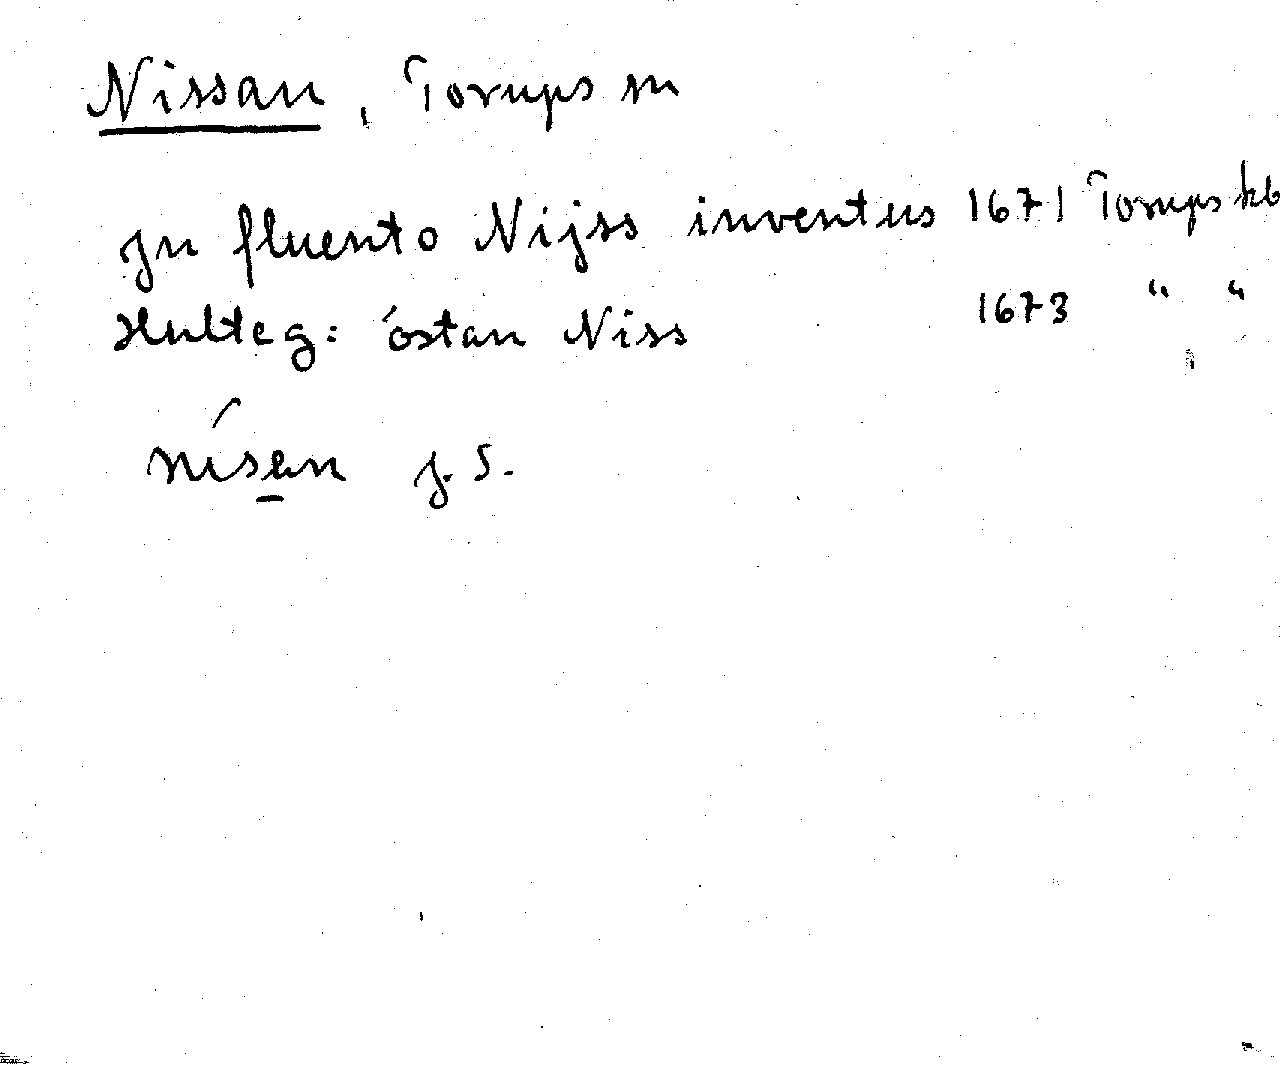 Nissan, Torups sn
Jn fluento Nijss inventus 1671 Torups kb
Hulteg: östan Niss 1673 " "
nísen J. S.